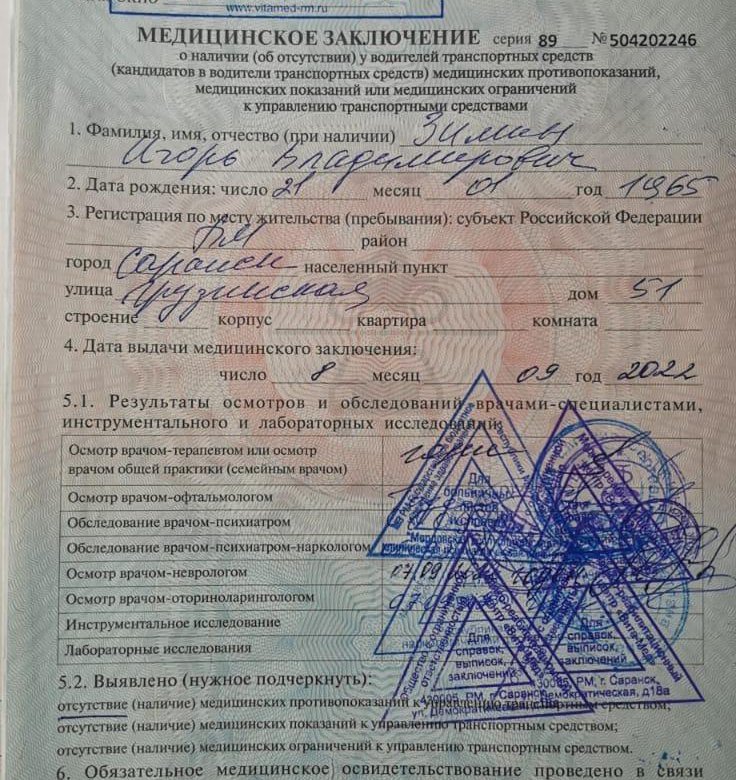 www.vitamed-rm.ru
МЕДИЦИНСКОЕ ЗАКЛЮЧЕНИЕ серия 89 № 504202246
о наличии (об отсутствии) у водителей транспортных средств
(кандидатов в водители транспортных средств) медицинских противопоказаний,
медицинских показаний или медицинских ограничений
к управлению транспортными средствами
1. Фамилия, имя, отчество (при наличии) Зимин
Игорь Владимирович
2. Дата рождения: число 21 месяц 01 год 1965
3. Регистрация по месту жительства (пребывания): субъект Российской Федерации
РМ район
город Саранск населенный пункт
улица Грузинская дом 51
строение корпус квартира комната
4. Дата выдачи медицинского заключения:
число 8 месяц 09 год 2022
5.1. Результаты осмотров и обследований врачами-специалистами,
инструментального и лабораторных исследований:
Осмотр врачом-терапевтом или осмотр
врачом общей практики (семейным врачом)
Осмотр врачом-офтальмологом
Обследование врачом-психиатром
Обследование врачом-психиатром-наркологом
Осмотр врачом-неврологом 07.09
Осмотр врачом-оториноларингологом
Инструментальное исследование
Лабораторные исследования
Для
больничных
листков
и справок
Для
справок,
выписок,
заключений
Для
справок,
выписок,
заключений
430005, РМ, г. Саранск,
ул. Демократическая, д18а
5.2. Выявлено (нужное подчеркнуть):
отсутствие (наличие) медицинских противопоказаний к управлению транспортным средством;
отсутствие (наличие) медицинских показаний к управлению транспортным средством;
отсутствие (наличие) медицинских ограничений к управлению транспортным средством.
6. Обязательное медицинское освидетельствование проведено в связи